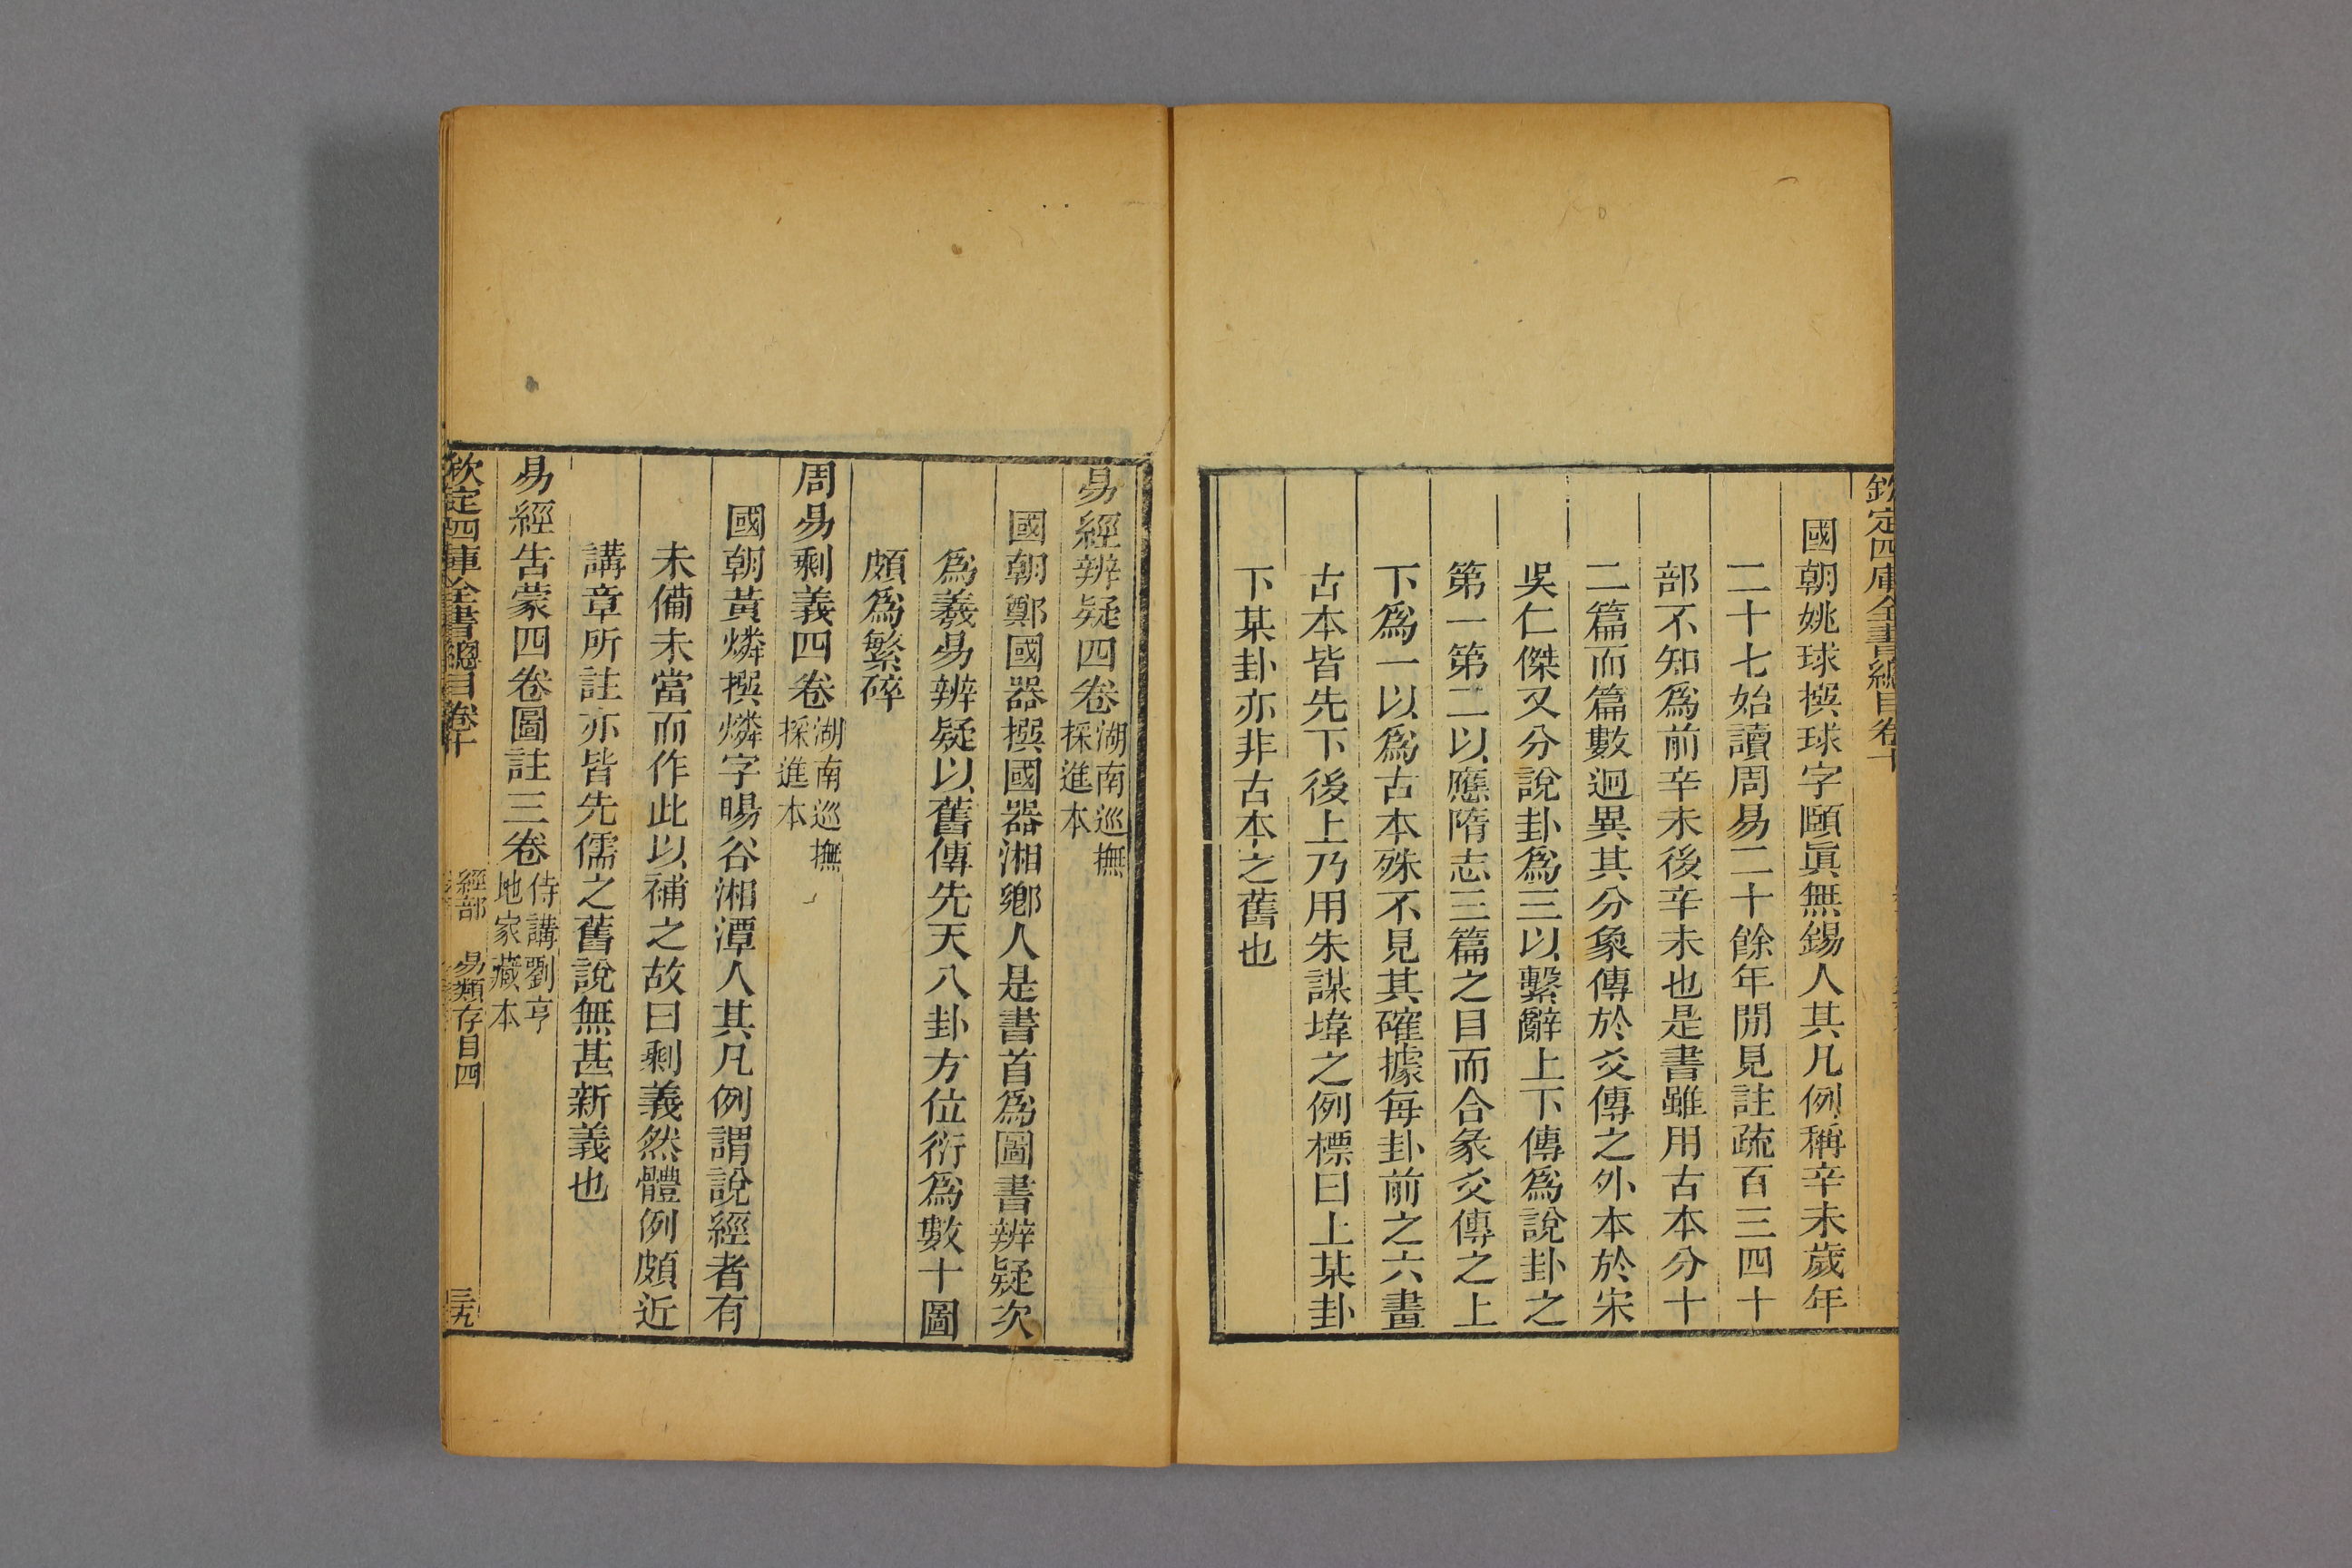 欽定四庫全書總目卷十
國朝姚球撰球字頤眞無錫人其凡例稱辛未歲年
二十七始讀周易二十餘年閒見註疏百三四十
部不知爲前辛未後辛未也是書雖用古本分十
二篇而篇數迥異其分象傳於爻傳之外本於宋
吳仁傑又分說卦爲三以繫辭上下傳爲說卦之
第一第二以應隋志三篇之目而合彖爻傳之上
下爲一以爲古本殊不見其確據每卦前之六畫
古本皆先下後上乃用朱謀㙔之例標曰上某卦
下某卦亦非古本之舊也
易經辨疑四卷湖南巡撫
採進本
國朝鄭國器撰國器湘鄕人是書首爲圖書辨疑次
爲羲易辨疑以舊傳先天八卦方位衍爲數十圖
頗爲繁碎
周易剩義四卷湖南巡撫
採進本
國朝黃燐撰燐字暘谷湘潭人其凡例謂說經者有
未備未當而作此以補之故曰剩義然體例頗近
講章所註亦皆先儒之舊說無甚新義也
易經告蒙四卷圖註三卷侍講劉亨
地家藏本
欽定四庫全書總目卷十
經部 易類存目四
三九